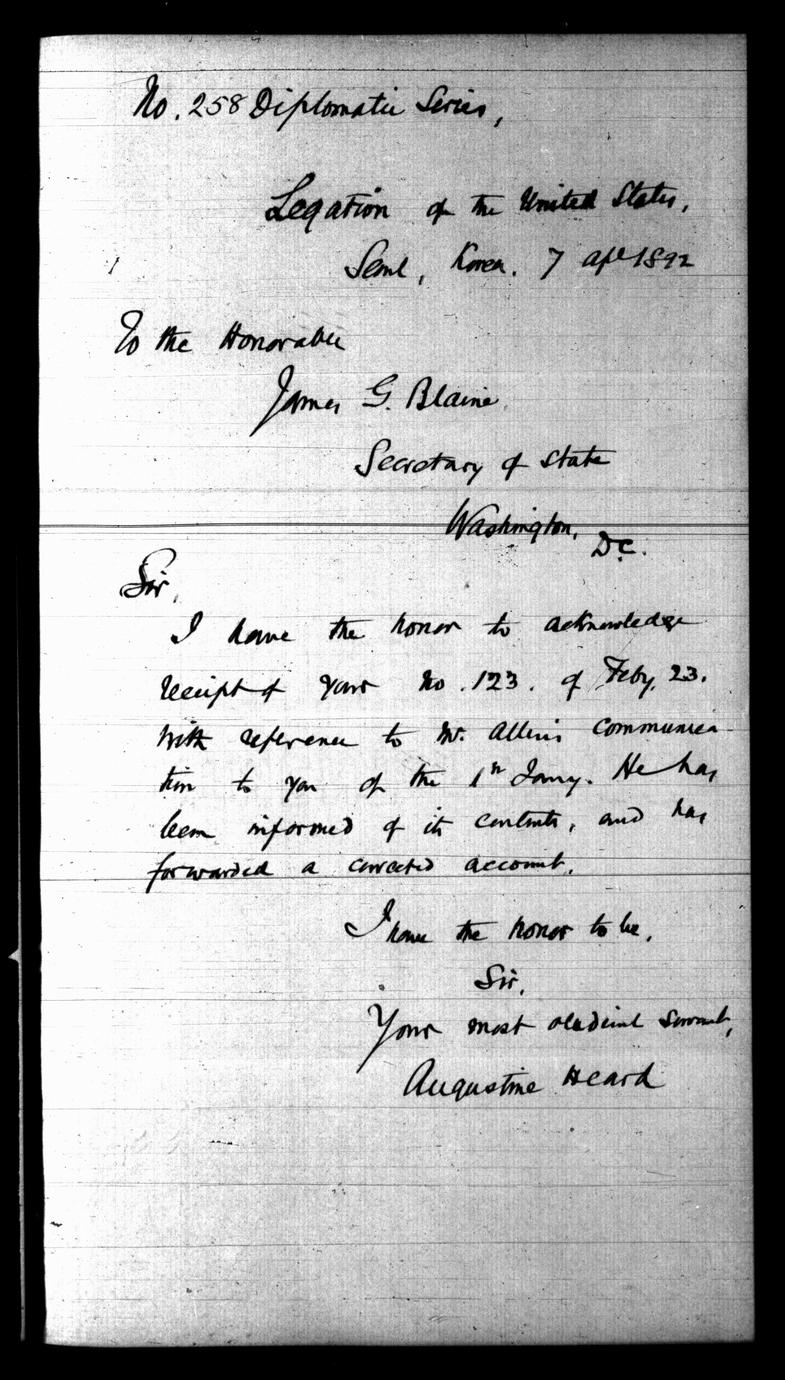 No. 258 Diplomatic Series,
Legation of the United States,
Seoul, Korea. 7 Apl 1892
To the Honorable
James G. Blaine
Secretary of State
Washington, D.C.
Sir,
I have the honor to acknowledge
receipt of your No. 123. of Feby. 23.
with reference to Mr. Allen's communica-
tion to you of the 1st Jany. He has
been informed of its contents, and has
forwarded a corrected account.
I have the honor to be,
Sir,
Your most obedient servant,
Augustine Heard